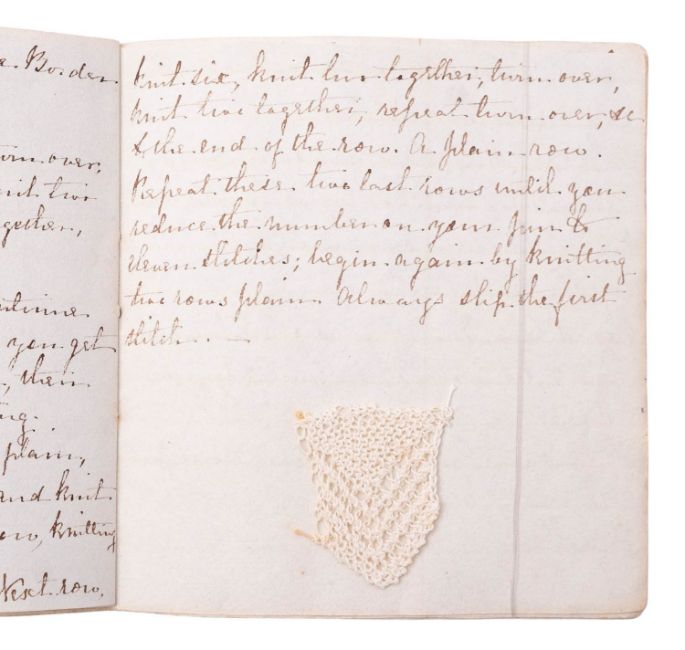 e. Border.
turn over,
knit two
together,
continue
you get
, then
plain,
and knit
row, knitting
Next row,
knit six, knit two together, turn over,
knit two together, repeat turn over, &c
to the end of the row. A plain row.
Repeat these two last rows until you
reduce the number on your pin to
eleven stitches; begin again by knitting
two rows plain. Always slip the first
stitch.